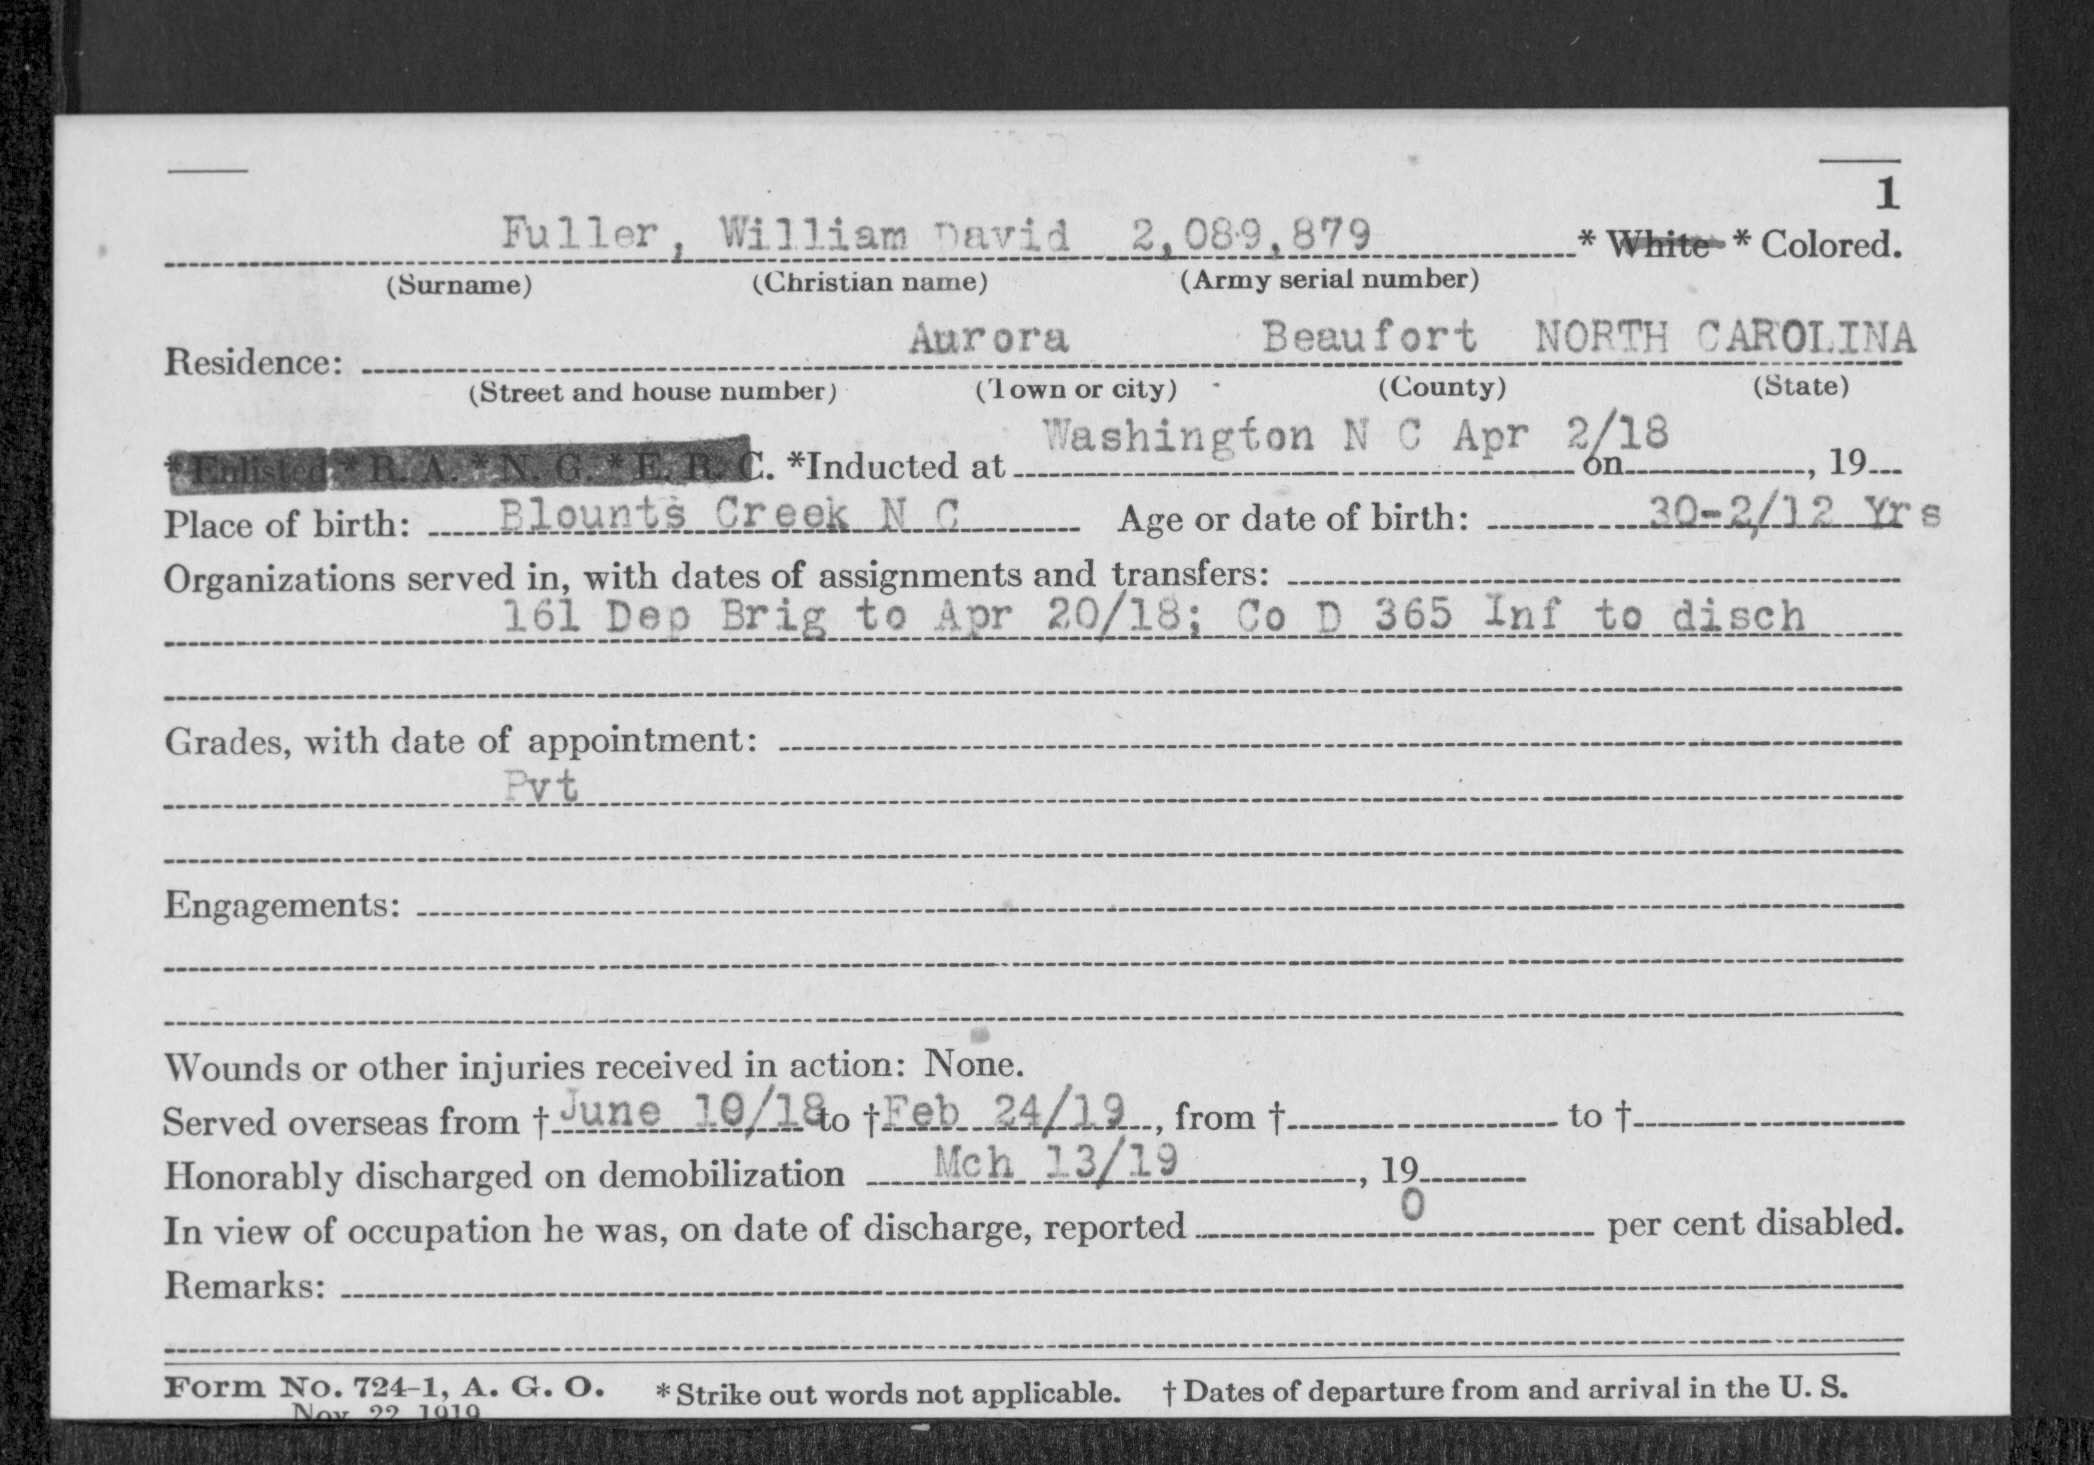 1
Fuller, William David 2,089,879 * White * Colored.
(Surname) (Christian name) (Army serial number)
Residence: Aurora Beaufort NORTH CAROLINA
(Street and house number) (Town or city) (County) (State)
* Enlisted * R. A. * N. G. * E. R. C. *Inducted at Washington N C Apr 2/18 on , 19
Place of birth: Blounts Creek N C Age or date of birth: 30-2/12 Yrs
Organizations served in, with dates of assignments and transfers:
161 Dep Brig to Apr 20/18; Co D 365 Inf to disch
Grades, with date of appointment:
Pvt
Engagements:
Wounds or other injuries received in action: None.
Served overseas from † June 10/18 to † Feb 24/19, from † to †
Honorably discharged on demobilization Mch 13/19, 19
In view of occupation he was, on date of discharge, reported 0 per cent disabled.
Remarks:
Form No. 724-1, A. G. O. * Strike out words not applicable. † Dates of departure from and arrival in the U. S.
Nov. 22, 1919